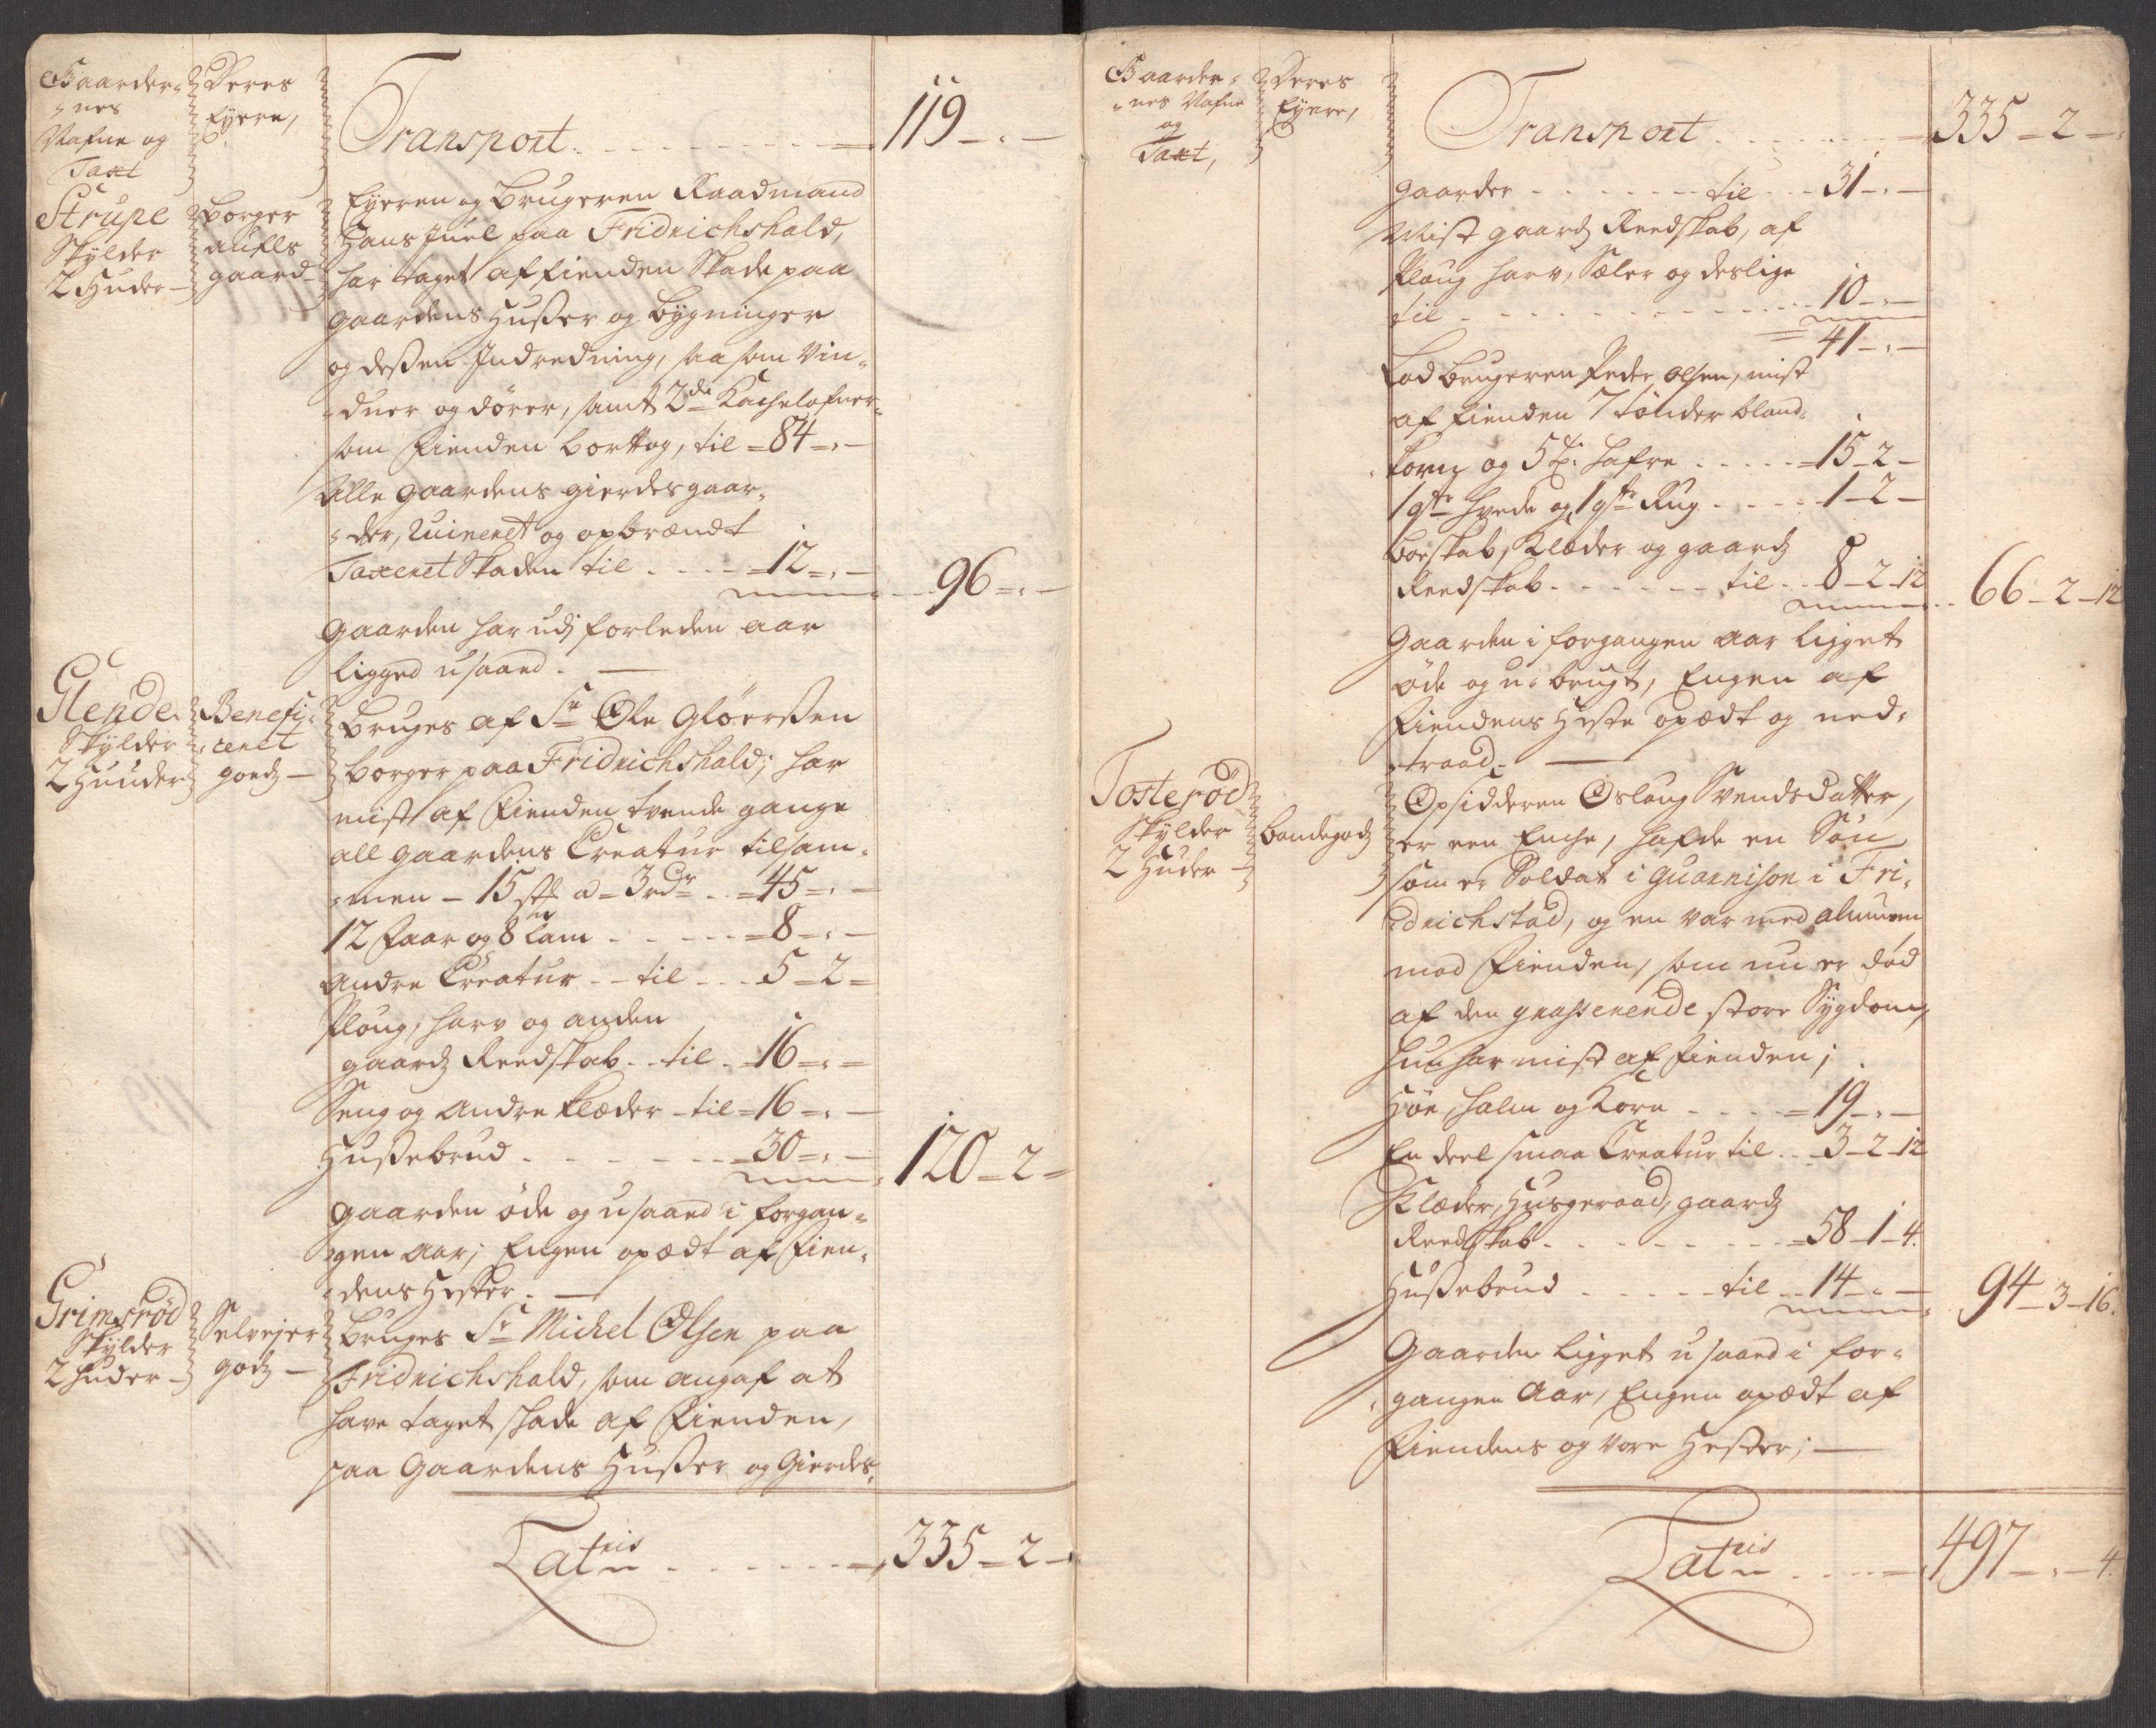 Gaarder-
nes
Nafne og
Taxt
Deres
Eyere,
Transport. - - - - - - - 119 - " -
Strupe
Skylder
2 Huder -
Borger
aufls
gaard -
Eyeren og Brugeren Raadmand
Hans Juel paa Fridrichshald,
har taget af Fienden Skade paa
Gaardens Husser og Bygninger
og dessen Indredning, saa som Vin-
-duer og dører, samt 2de Kachelofner
som Fienden borttog, til - 84 - " -
Alle Gaardens gierdesgaar-
-der, Ruineret og opbrændt
Taxeret Skaden til - - - 12 - " - 96 - " -
Gaarden har udj forleden aar
ligged usaaed. -
Glende
Skylder
2 Huuder
Benefi-
-ceret
goedz -
Bruges af Sr Ole Glöerssen
borger paa Fridrichshald; har
mist af Fienden tvende gange
all gaardens Creatur tilsam-
-men - 15 st a 3 rdr - 45 - " -
12 Faar og 8 Lam - - - 8 - " -
Andre Creatur - - til - - 5 - 2 -
Ploug, harv og anden
gaardz Reedskab - - til - 16 - " -
Seng og andre Klæder - til - 16 - " -
Hussebrud - - - - - 30 - " - 120 - 2 -
Gaarden öde og usaaed i forgan-
-gen aar; Engen opædt af Fien-
-dens Hester. -
Grimsröd
Skylder
2 Huder -
Selvejer
godz -
Bruges Sr Michel Olsen paa
Fridrichshald, som angaf at
have taget skade af Fienden,
paa Gaardens Husser og Gierdes-
Latris - - - - - 335 - 2 -
Gaarder-
-nes Nafne
og
Taxt,
Deres
Eyere,
Transport - - - - - 335 - 2 -
gaarder - - - - - til - - 31 - " -
Mist gaardz Reedskab, af
Ploug harv, Sæler og deslige
til - - - - - - - - 10 - " -
41 - " -
Lod Brugeren Peder Olsen, mist
af Fienden 7 tönder bland-
-korn og 5 tr. hafre - - - 15 - 2 -
1 qtr hvede og 1 qtr Rug - - - 1 - 2 -
Boeskab, Klæder og gaardz
Reedskab - - - - - til - - 8 - 2 - 12 66 - 2 - 12
Gaarden i forgangen aar ligget
öde og u-brugt, Engen af
Fiendens Heste opædt og ned-
-traad. -
Tosteröd
Skylder
2 Huder -
Bondegodz
Opsidderen Oslaug Svendsdatter,
er een Enche, hafde en Sön
som er Soldat i Guarnison i Fri-
drichstad, og en var med almuen
mod Fienden, som nu er död
af den grasserende store Sygdom,
hun har mist af Fienden;
Höe, halm og Korn - - - 19 - " -
En deel smaa Creatur til - - 3 - 2 - 12
Klæder, Husgeraad, gaardz
Reedskab - - - - - - 58 - 1 - 4.
Hussebrud - - - - til - - 14 - " - 94 - 3 - 16.
Gaarden ligget usaaed i for-
-gangen Aar, Engen opædt af
Fiendens og vore Hester; -
Latris - - - - 497 - " - 4.